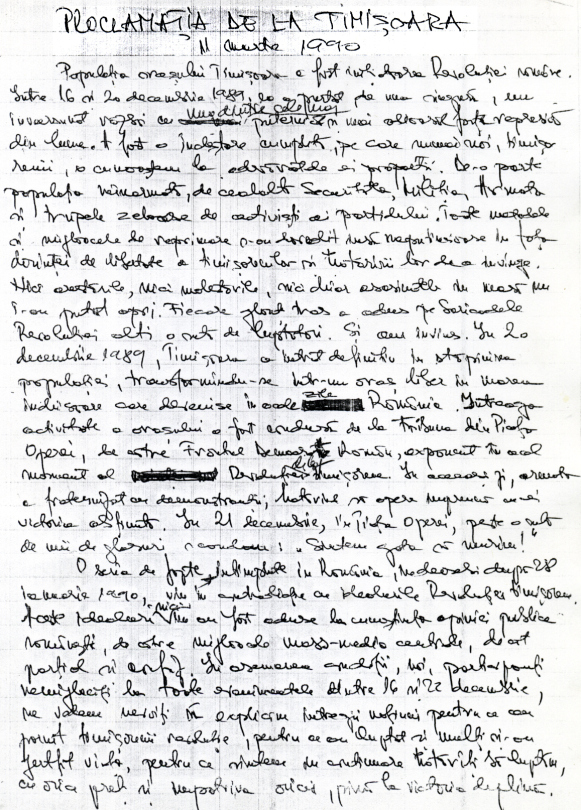 PROCLAMAȚIA DE LA TIMIȘOARA
11 martie 1990
Populația orașului Timișoara a fost inițiatoarea Revoluției române.
Între 16 și 20 decembrie 1989, ea a purtat, de una singură, un
înverșunat război cu unul dintre cele mai puternice și mai odioase forțe represive
din lume. A fost o încleștare cumplită, pe care numai noi, timișo-
renii, o cunoaștem la adevăratele ei proporții. De o parte
populația neînarmată, de cealaltă Securitatea, Miliția, Armata
și trupele zeloase de activiști ai partidului. Toate metodele
și mijloacele de reprimare s-au dovedit însă neputincioase în fața
dorinței de libertate a timișorenilor și hotărârii lor de a învinge.
Nici arestările, nici molestările, nici chiar asasinatele în masă nu
i-au putut opri. Fiecare glonț tras a adus pe baricadele
Revoluției alți o sută de luptători. Și am învins. În 20
decembrie 1989, Timișoara a intrat definitiv în stăpânirea
populației, transformându-se într-un oraș liber în marea
închisoare care devenise în acele zile România. Întreaga
activitate a orașului a fost condusă de la tribuna din Piața
Operei, de către Frontul Democrat Român, exponent în acel
moment al Revoluției de la Timișoara. În aceeași zi, armata
a fraternizat cu demonstranții, hotărând să apere împreună cu ei
victoria obținută. În 21 decembrie, în Piața Operei, peste o sută
de mii de glasuri scandau: „Suntem gata să murim!”
O serie de fapte întâmplate în România, îndeosebi după 28
ianuarie 1990, vin în contradicție cu idealurile Revoluției timișorene.
Aceste idealuri nici nu au fost aduse la cunoștința opiniei publice
românești, de către mijloacele mass-media centrale, decât
parțial și confuz. În asemenea condiții, noi, participanții
nemijlociți la toate evenimentele dintre 16 și 22 decembrie,
ne vedem nevoiți să explicăm întregii națiuni pentru ce au
pornit timișorenii revoluția, pentru ce au luptat și mulți și-au
jertfit viața, pentru ce suntem în continuare hotărâți să luptăm,
cu orice preț și împotriva oricui, până la victoria deplină.